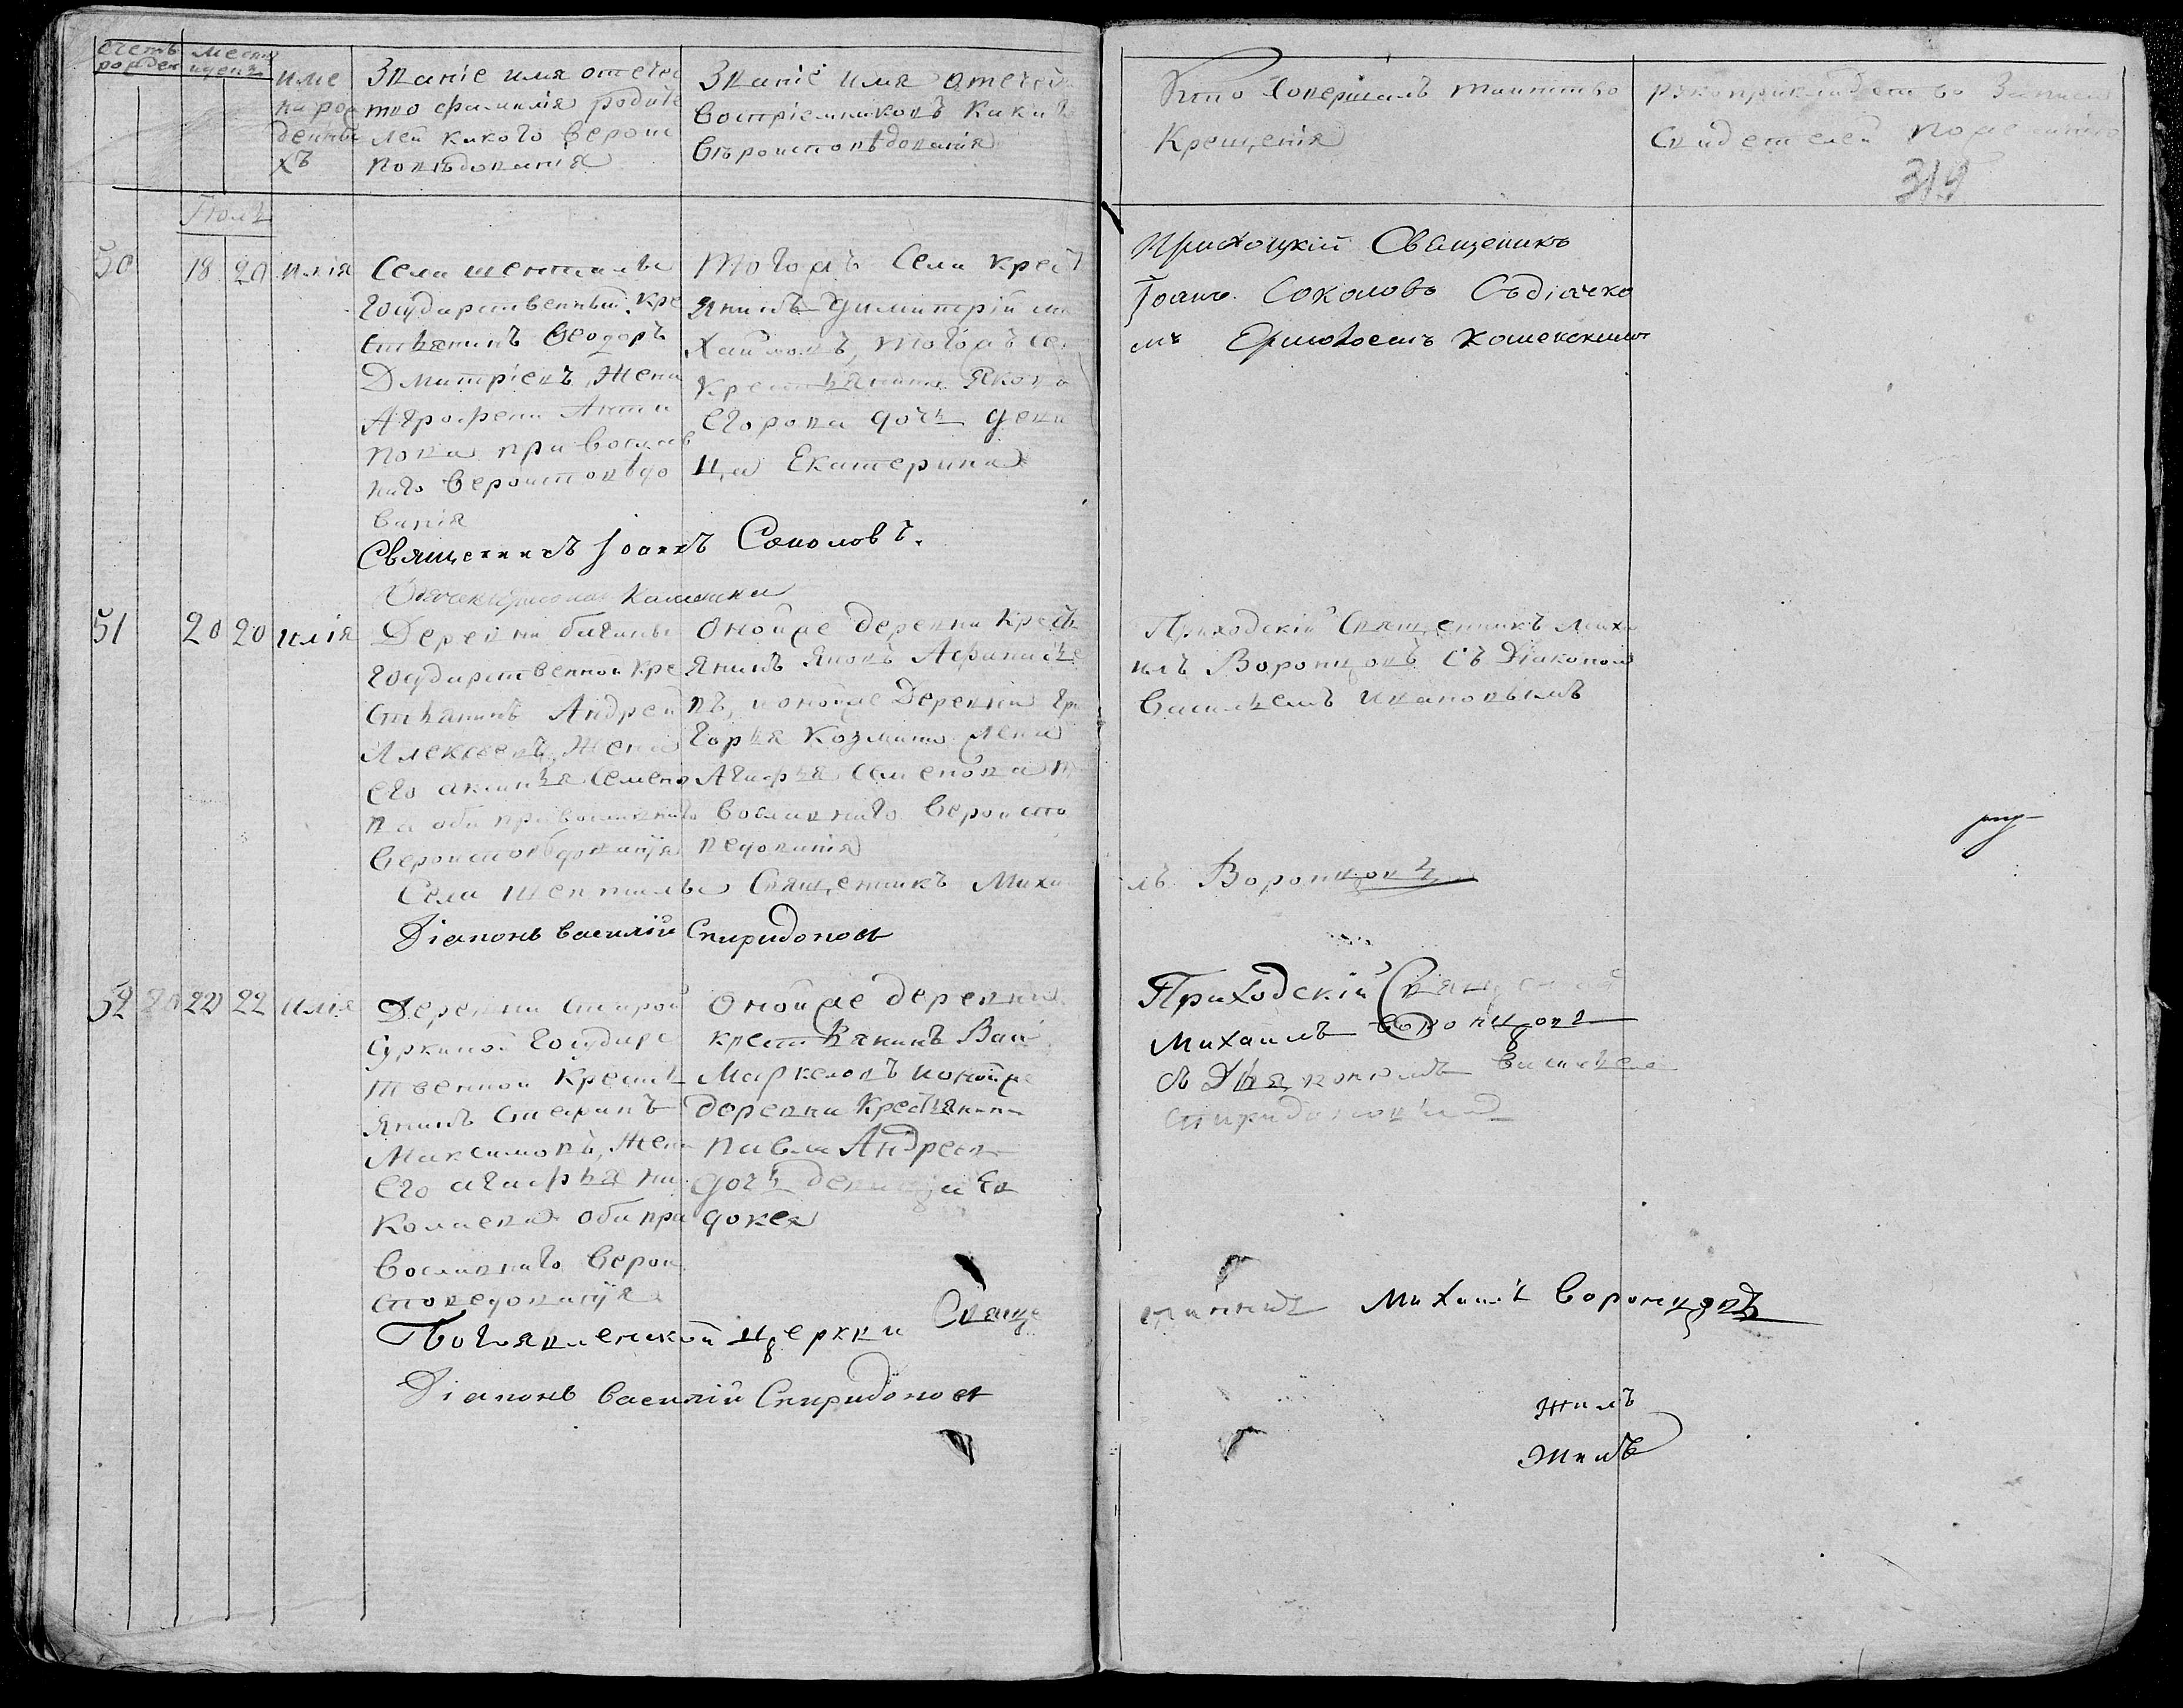 счетъ рожден
месяцъ и день
име
на рож
денны
хъ
Званіе имя отечес
тво фамилія родите
лей какого вероис
поведованія
Званіе имя отечест
воспріемниковъ какив
вѣроисповѣдованія
Кто Совершалъ таинство
Крещенія
рукоприкладство Записи
Свидетелей по желанію
319
Июль
50 18 20 илія
Села шентальи
государственный кре
стьянинъ Ѳеодоръ
Дмитріевъ, Жена
Агрофена Анти
пова православ
наго вероисповѣдо
ванія
тогожъ Села крест
янинъ Димитрій ми
хайловъ, тогожъ Се
крестьянина Якова
Егорова дочь деви
ца Екатерина
Приходцкій Священикъ
Іоанъ Соколовъ Съдіачко
мъ Ермолаемъ
Священникъ Іоаннъ Соколовъ.
51 20 20 илія
Деревни
государственной кре
стьянинъ Андрей
Алексеевъ, Жена
его акилина Семено
ва оба православнаго
вероисповѣдованія
Онойже деревни крест
янинъ Яковъ Афанасье
въ, ионойже Деревни Гри
горья Козмина жена
Агафья Семенова пра
вославнаго вероиспо
ведованія
Приходскій Священникъ Миха
илъ Воронцовъ Съ Діакономъ
Васильемъ Ивановымъ
Села шентальи Священникъ Михаи
лъ Воронцовъ
Діаконъ василій Спиридоновъ
52 22 22 илія
Деревни старой
Суркиной государс
твенной Кресть
янинъ стефанъ
Максимовъ, Жена
его агафья ни
колаева оба пра
вославнаго верои
споведованія
Онойже деревни
крестьянинъ
Маркеловъ ионойже
деревни Крестьянина
павла Андреева
дочь девица Ев
докея
Приходскій Священникъ
Михаилъ Воронцовъ
съ Дьякономъ васильемъ
спиридоновымъ
Богоявленской церкви Свяще
нникъ Михаилъ Воронцовъ
Діаконъ василій Спиридоновъ
жилъ
жилъ